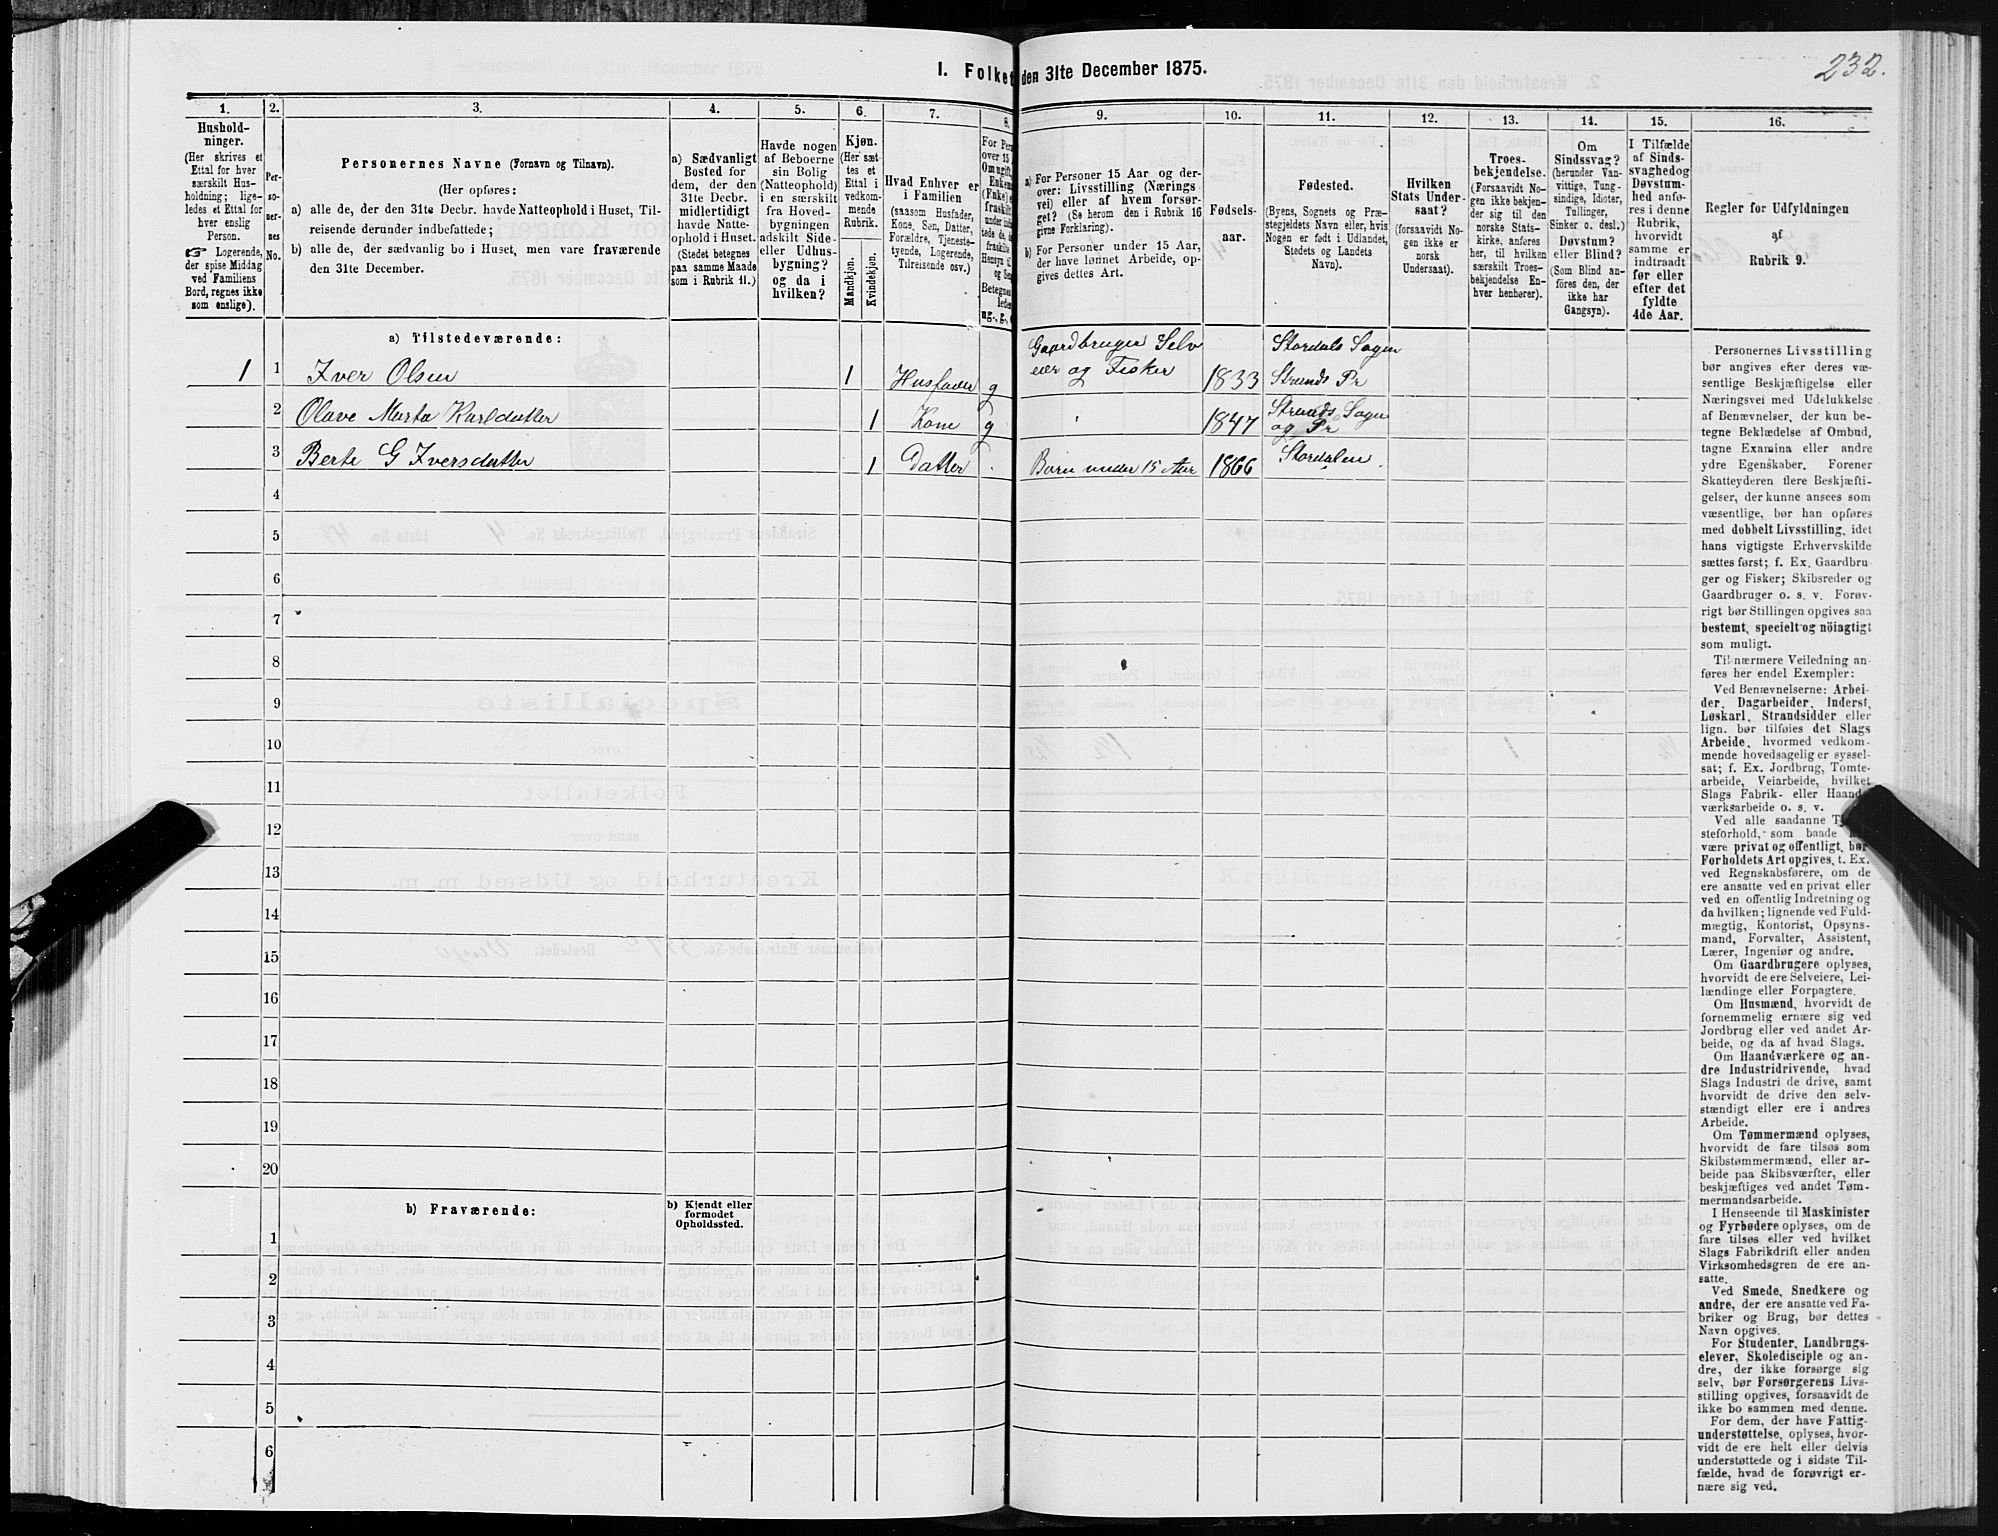 I. Folket
den 31te December 1875.
232.
1.
2.
3.
4.
5.
6.
7.
8.
9.
10.
11.
12.
13.
14.
15.
16.
Hushold-
ninger.
(Her skrives et
Ettal for hver
særskilt Hus-
holdning; lige-
ledes et Ettal for
hver enslig
Person.
☞ Logerende,
der spise Middag
ved Familiens
Bord, regnes ikke
som enslige).
Per-
so-
ner-
nes
No.
Personernes Navne (Fornavn og Tilnavn).
(Her opføres:
a) alle de, der den 31te Decbr. havde Natteophold i Huset, Til-
reisende derunder indbefattede;
b) alle de, der sædvanlig bo i Huset, men vare fraværende
den 31te December.
a) Sædvanligt
Bosted for
dem, der den
31te Decbr.
midlertidigt
havde Natte-
ophold i Huset.
(Stedet betegnes
paa samme Maade
som i Rubrik 11.)
Havde nogen
af Beboerne
sin Bolig
(Natteophold)
i en særskilt
fra Hoved-
bygningen
adskilt Side-
eller Udhus-
bygning?
og da i
hvilken?
Kjøn.
(Her sæt-
tes et
Ettal i
vedkom-
mende
Rubrik.
Mandkjøn.
Kvindekjøn.
Hvad Enhver er
i Familien
(saasom Husfader,
Kone, Søn, Datter,
Forældre, Tjeneste-
tyende, Logerende,
Tilreisende osv.)
For Pers
over 15 A
Om ugift,
Enkem
(Fnke) e
fraskilt
a) For Personer 15 Aar og der-
over: Livsstilling (Nærings-
vei) eller af hvem forsør-
get? (Se herom den i Rubrik 16
givne Forklaring).
b) For Personer under 15 Aar,
der have lønnet Arbeide, op-
gives dettes Art.
Fødsels-
aar.
Fødested.
(Byens, Sognets og Præ-
stegjeldets Navn eller, hvis
Nogen er født i Udlandet,
Stedets og Landets
Navn).
Hvilken
Stats Under-
saat?
(forsaavidt No-
gen ikke er
norsk
Undersaat).
Troes-
bekjendelse.
(Forsaavidt No-
gen ikke bekjen-
der sig til den
norske Stats-
kirke, anføres
her, til hvilken
særskilt Troes-
bekjendelse En-
hver henhører).
Om
Sindssvag?
(herunder Van-
vittige, Tung-
sindige, Idioter,
Tullinger,
Sinker o. desl.)
Døvstum?
eller Blind?
(Som Blind an-
føres den, der
ikke har
Gangsyn).
I Tilfælde
af Sinds-
svaghed og
Døvstum-
hed anfø-
res i denne
Rubrik,
hvorvidt
samme er
indtraadt
før eller
efter det
fyldte
4de Aar.
Regler for Udfyldningen
af
Rubrik 9.
a) Tilstedeværende:
1 1 Iver Olsen 1 Husfader g Gaardbruger Selv
eier og Fisker 1833 Stordals Sogn
Strands Pr
2 Olave Marta Karldatter 1 Kone g " 1847 Strands Sogn
og Pr
3 Berte G Iversdatter 1 Datter . Barn under 15 Aar 1866 Stordalen
4
5
6
7
8
9
10
11
12
13
14
15
16
17
18
19
20
b) Fraværende:
b) Kjendt eller
formodet
Opholdssted.
1
2
3
4
5
6
Personernes Livsstilling
bør angives efter deres væ-
sentlige Beskjæftigelse eller
Næringsvei med Udelukkelse
af Benævnelser, der kun be-
tegne Beklædelse af Ombud,
tagne Examina eller andre
ydre Egenskaber. Forener
Skatteyderen flere Beskjæfti-
gelser, der kunne ansees som
væsentlige, bør han opføres
med dobbelt Livsstilling, idet
hans vigtigste Erhvervskilde
sættes først; f. Ex. Gaardbru-
ger og Fisker; Skibsreder og
Gaardbruger o. s. v. Forøv-
rigt bør Stillingen opgives saa
bestemt, specielt og nöiagtigt
som muligt.
Til nærmere Veiledning an-
føres her endel Exempler:
Ved Benævnelserne: Arbei-
der, Dagarbeider, Inderst,
Løskarl, Strandsidder eller
lign. bør tilføies det Slags
Arbeide, hvormed vedkom-
mende hovedsagelig er syssel-
sat; f. Ex. Jordbrug, Tomte-
arbeide, Veiarbeide, hvilket
Slags Fabrik- eller Haand-
værksarbeide o. s. v.
Ved alle saadanne
steforhold, som baade
være privat og offentligt, bør
Forholdets Art opgives, t. Ex.
ved Regnskabsførere, om de
ere ansatte ved en privat eller
ved en offentlig Indretning og
da hvilken; lignende ved Fuld-
mægtig, Kontorist, Opsyns-
mand, Forvalter, Assistent,
Lærer, Ingeniør og andre.
Om Gaardbrugere oplyses,
hvorvidt de ere Selveiere, Lei-
lændinge eller Forpagtere.
Om Husmænd, hvorvidt de
fornemmelig ernære sig ved
Jordbrug eller ved andet Ar-
beide, og da af hvad Slags.
Om Haandværkere og an-
dre Industridrivende, hvad
Slags Industri de drive, samt
hvorvidt de drive den selv-
stændigt eller ere i andres
Arbeide.
Om Tømmermænd oplyses,
hvorvidt de fare tilsøs som
Skibstømmermænd, eller ar-
beide paa Skibsværfter, eller
beskjæftiges ved andet Tøm-
mermandsarbeide.
I Henseende til Maskinister
og Fyrbødere oplyses, om de
fare tilsøs eller ved hvilket
Slags Fabrikdrift eller anden
Virksomhedsgren de ere an-
satte.
Ved Smede, Snedkere og
andre, der ere ansatte ved Fa-
briker og Brug, bør dettes
Navn opgives.
For Studenter, Landbrugs-
elever, Skoledisciple og an-
dre, der ikke forsørge sig
selv, bør Forsørgerens Livs-
stilling opgives, forsaavidt de
ikke bo sammen med denne.
For dem, der have Fattig-
understøttelse, oplyses, hvor-
vidt de ere helt eller delvis
understøttede og i sidste Til-
fælde, hvad de forøvrigt er-
nære sig ved.